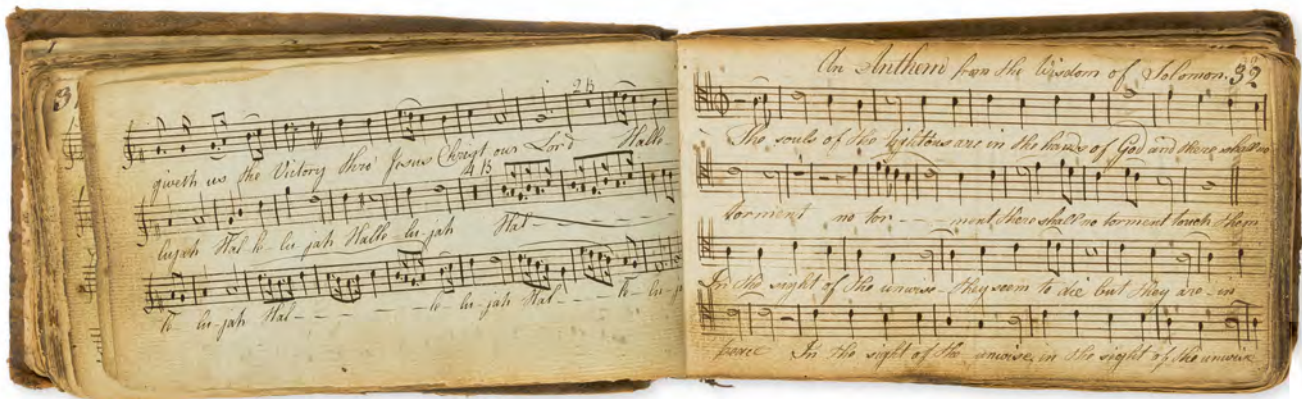 2 B
giveth us the Victory thro' Jesus Christ our Lord Halle
4 B
lujah Hal-le-lu-jah Halle-lu-jah Hal-
le-lu-jah Hal- le-lu-jah Hal- le-lu-j
3
An Anthem from the Wisdom of Solomon. 32
The souls of the Rightous are in the hands of God and there shall no
torment no tor- ment there shall no torment touch them
In the sight of the unwise they seem to die but they are in
peace In the sight of the unwise, in the sight of the unwise